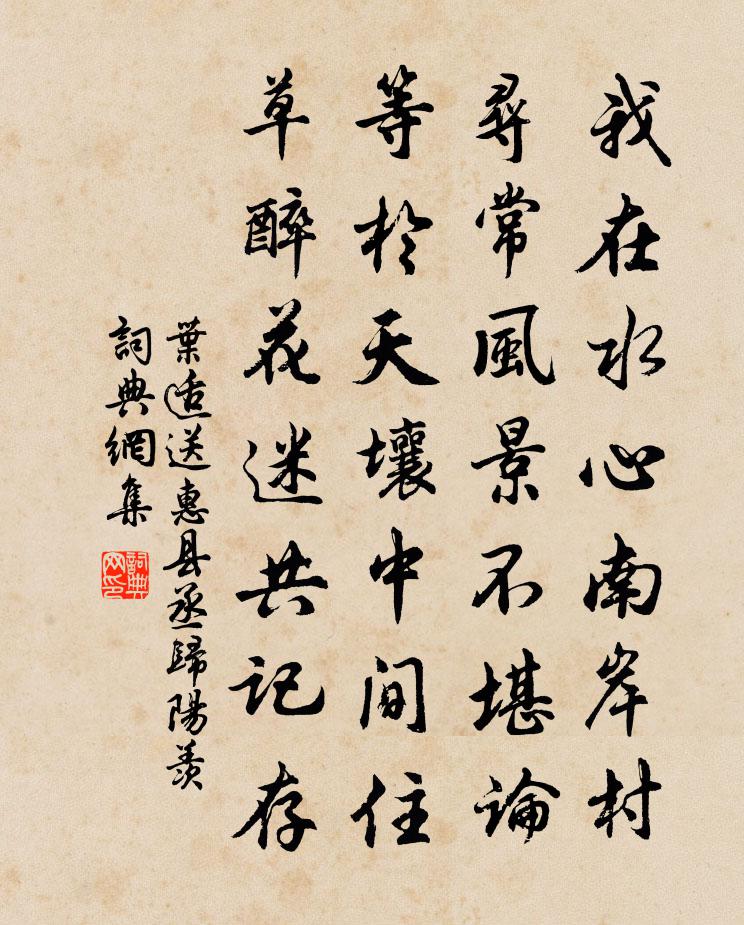 我在水心南岸村
尋常風景不堪論
等於天壤中間住
草醉花迷共記存
葉适送惠县丞歸陽羨
詞典網集
詞典网印